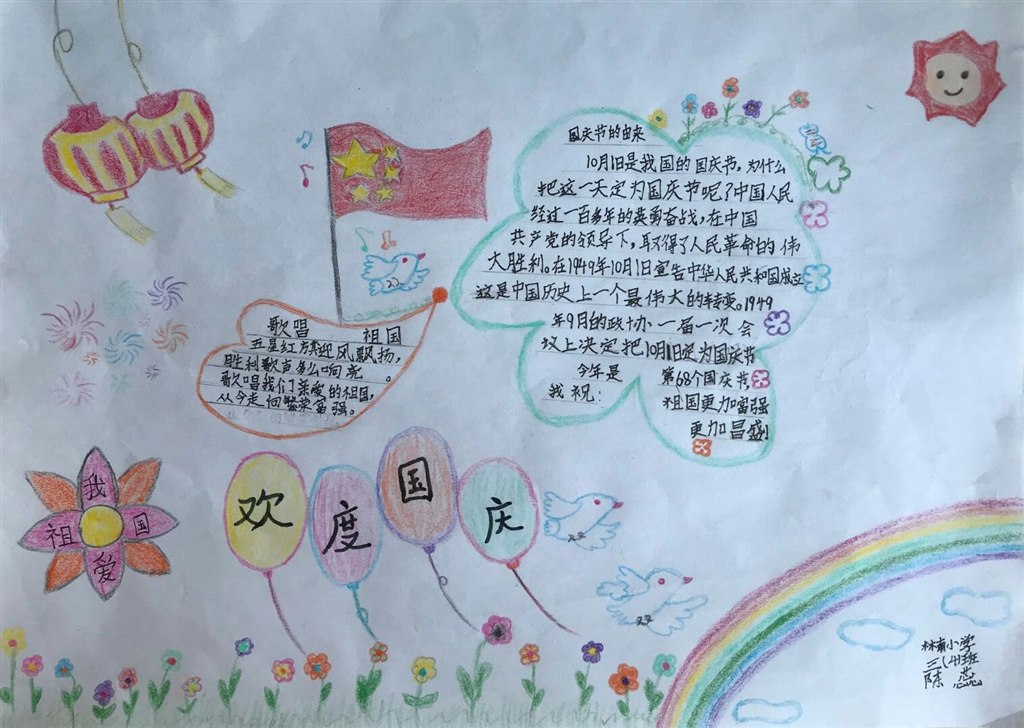 国庆节的由来
10月1日是我国的国庆节,为什么
把这一天定为国庆节呢?中国人民
经过一百多年的英勇奋战,在中国
共产党的领导下,取得了人民革命的伟
大胜利。在1949年10月1日宣告中华人民共和国成立
这是中国历史上一个最伟大的转变。1949
年9月的政协一届一次会
议上决定把10月1日定为国庆节
今年是 第68个国庆节
我祝: 祖国更加富强
更加昌盛
歌唱 祖国
五星红旗迎风飘扬,
胜利歌声多么响亮。
歌唱我们亲爱的祖国,
从今走向繁荣富强。
欢度国庆
我
祖 国
爱
小学
三(4)班
陈蕊